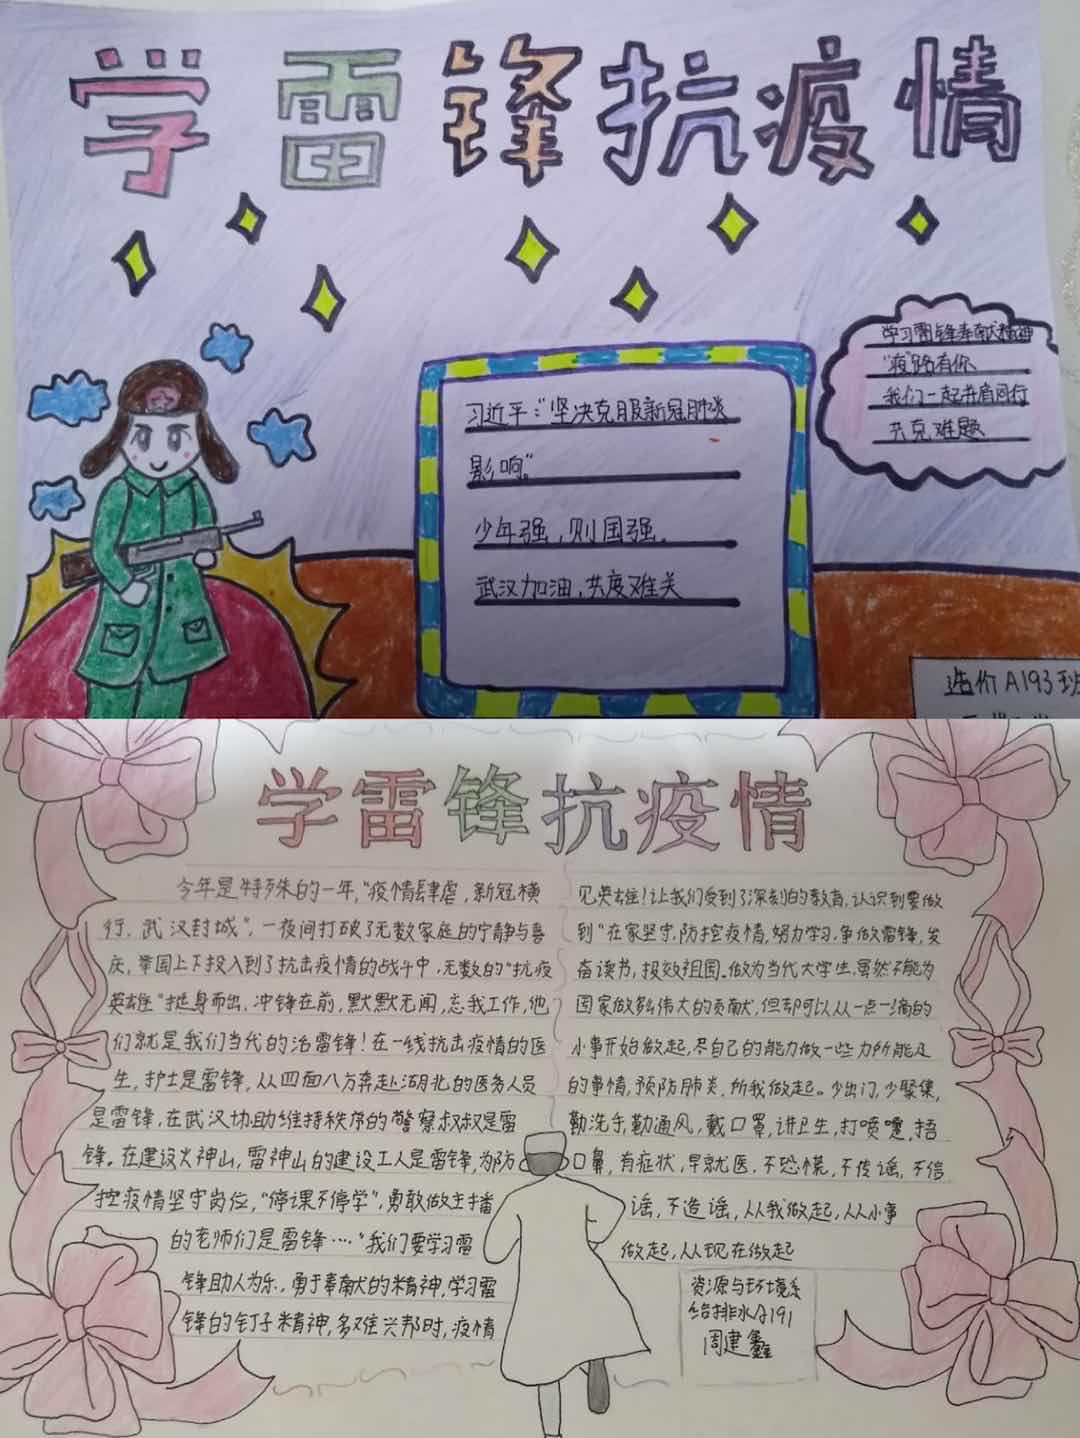 学雷锋抗疫情
习近平："坚决克服新冠肺炎
影响"
少年强，则国强。
武汉加油，共度难关
学习雷锋奉献精神
"疫"路有你
我们一起并肩同行
共克难题
造价A193班
学雷锋抗疫情
今年是特殊的一年，"疫情肆虐，新冠横
行，武汉封城"，一夜间打破了无数家庭的宁静与喜
庆，举国上下投入到了抗击疫情的战斗中，无数的"抗疫
英雄"挺身而出，冲锋在前，默默无闻，忘我工作，他
们就是我们当代的活雷锋！在一线抗击疫情的医
生，护士是雷锋，从四面八方奔赴湖北的医务人员
是雷锋，在武汉协助维持秩序的警察叔叔是雷
锋。在建设火神山，雷神山的建设工人是雷锋，为防
控疫情坚守岗位，"停课不停学"，勇敢做主播
的老师们是雷锋……"我们要学习雷
锋助人为乐，勇于奉献的精神，学习雷
锋的钉子精神，多难兴邦时，疫情
见英雄！让我们受到了深刻的教育，认识到要做
到"在家坚守，防控疫情，努力学习，争做雷锋，发
奋读书，报效祖国。做为当代大学生，虽然不能为
国家做多么伟大的贡献，但却可以从一点一滴的
小事开始做起，尽自己的能力做一些力所能及
的事情，预防肺炎，所我做起。少出门，少聚集，
勤洗手，勤通风，戴口罩，讲卫生，打喷嚏，捂
口鼻，有症状，早就医，不恐慌，不传谣，不信
谣，不造谣，从我做起，从小事
做起，从现在做起
资源与环境系
给排水A191
周建鑫